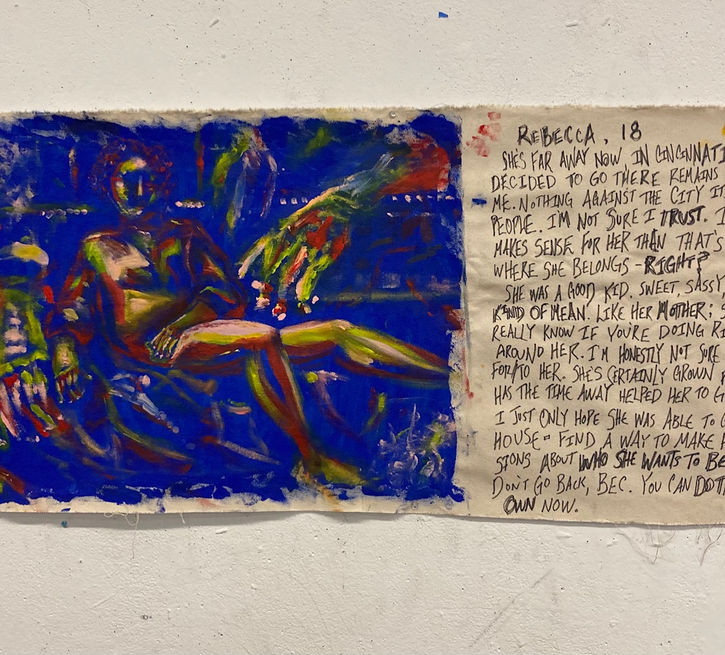 REBECCA, 18
SHE'S FAR AWAY NOW IN CINCINNATI
DECIDED TO GO THERE REMAINS
ME. NOTHING AGAINST THE CITY
PEOPLE. I'M NOT SURE I TRUST.
MAKES SENSE FOR HER THAN THAT'S
WHERE SHE BELONGS - RIGHT?
SHE WAS A GOOD KID. SWEET, SASSY,
KIND OF MEAN. LIKE HER MOTHER;
REALLY KNOW IF YOU'RE DOING
AROUND HER. I'M HONESTLY NOT SURE
FOR/TO HER. SHE'S CERTAINLY GROWN
HAS THE TIME AWAY HELPED HER TO
I JUST ONLY HOPE SHE WAS ABLE TO
HOUSE - FIND A WAY TO MAKE
SIONS ABOUT WHO SHE WANTS TO BE
DON'T GO BACK, BEC. YOU CAN DO
OWN NOW.